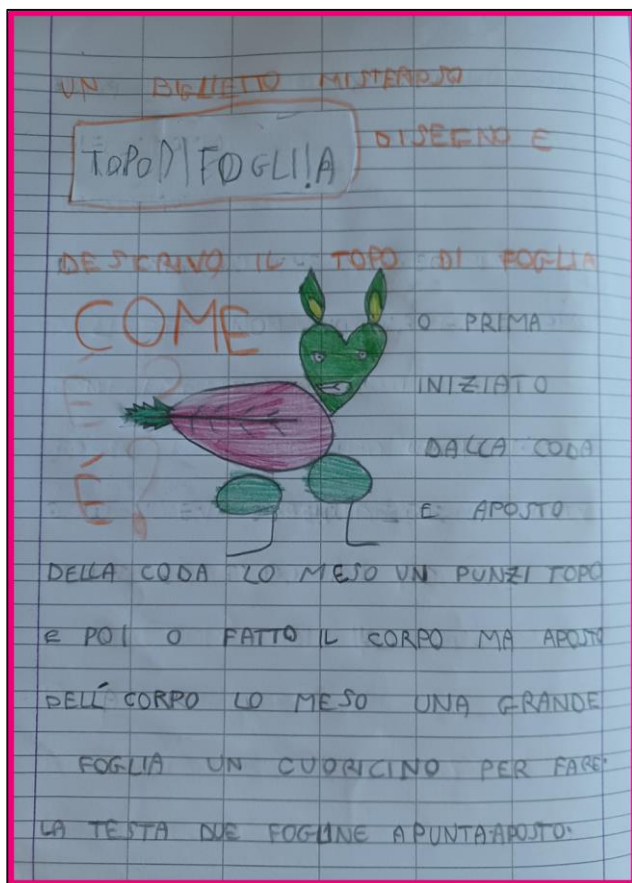 UN BIGLIETTO MISTERIOSO
TOPO DI FOGLI!A
DISEGNO E
DESCRIVO IL TOPO DI FOGLIA
COME
È?
O PRIMA
INIZIATO
DALLA CODA
E APOSTO
DELLA CODA LO MESO UN PUNZI TOPO
E POI O FATTO IL CORPO MA APOSTO
DELL' CORPO LO MESO UNA GRANDE
FOGLIA UN CUORICINO PER FARE
LA TESTA DUE FOGLINE APUNTA.APOSTO.